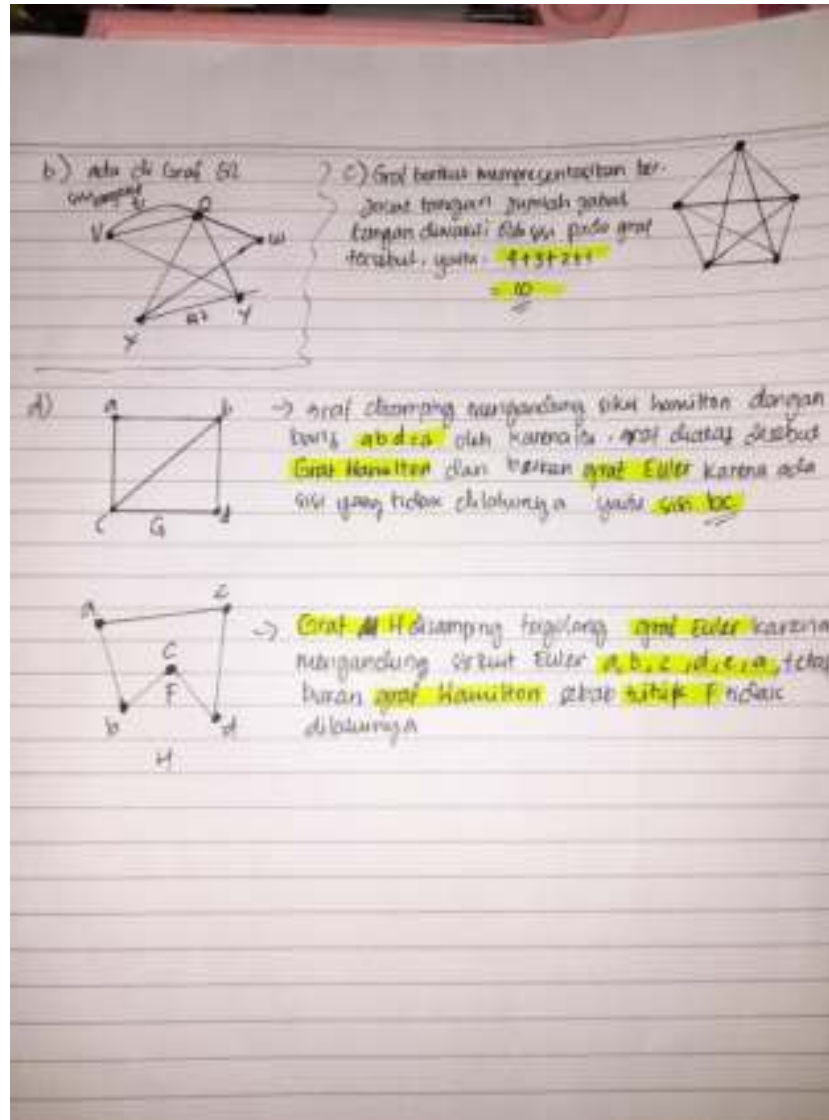 b) ada di Graf G2
V
w
X
Y
c) Graf berikut mempresentasikan ber-
jabat tangan jumlah jabat
tangan diwakili oleh sisi pada graf
tersebut, yaitu. 4+3+2+1
= 10
d)
a
b
c
G
d
→ graf disamping mengandung sikel hamilton dengan
abdca oleh karena itu, graf diatas disebut
Graf Hamilton dan bukan graf Euler karena ada
sisi yang tidak dilaluinya yaitu sisi bc
a
c
F
b
d
H
→ Graf H disamping graf Euler karena
mengandung sirkuit Euler a, b, c, d, e, a, tetap
bukan graf Hamilton sebab titik F tidak
dilaluinya